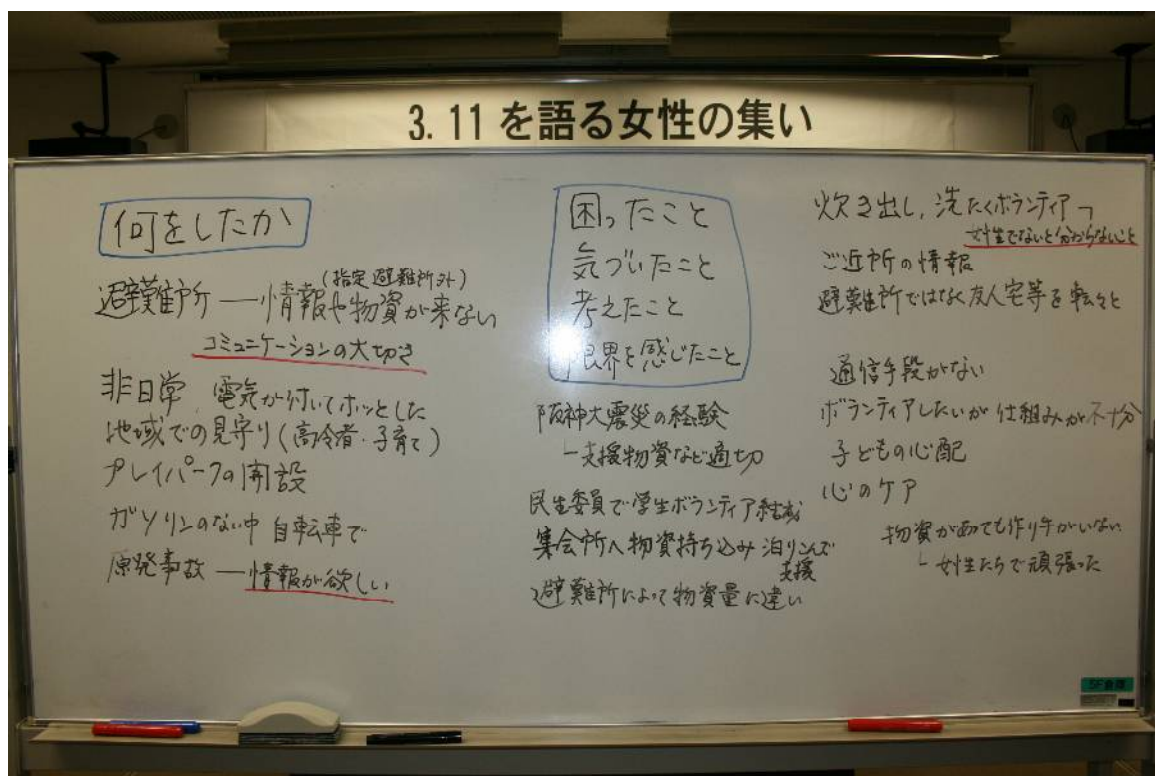 3.11を語る女性の集い
何をしたか
(指定避難所外)
避難所 ― 情報や物資が来ない
コミュニケーションの大切さ
非日常 電気が付いてホッとした
地域での見守り(高令者・子育て)
プレイパークの開設
ガソリンのない中 自転車で
原発事故 ― 情報が欲しい
困ったこと
気づいたこと
考えたこと
限界を感じたこと
阪神大震災の経験
└支援物資など適切
民生委員で学生ボランティア結成
集会所へ物資持ち込み 泊りこんで
支援
避難所によって物資量に違い
炊き出し, 洗たくボランティア┐
女性でないと分からないこと
ご近所の情報
避難所ではなく友人宅等を転々と
通信手段がない
ボランティアしたいが 仕組みが不十分
子どもの心配
心のケア
物資があっても作り手がいない
└女性たちで頑張った
5F会議